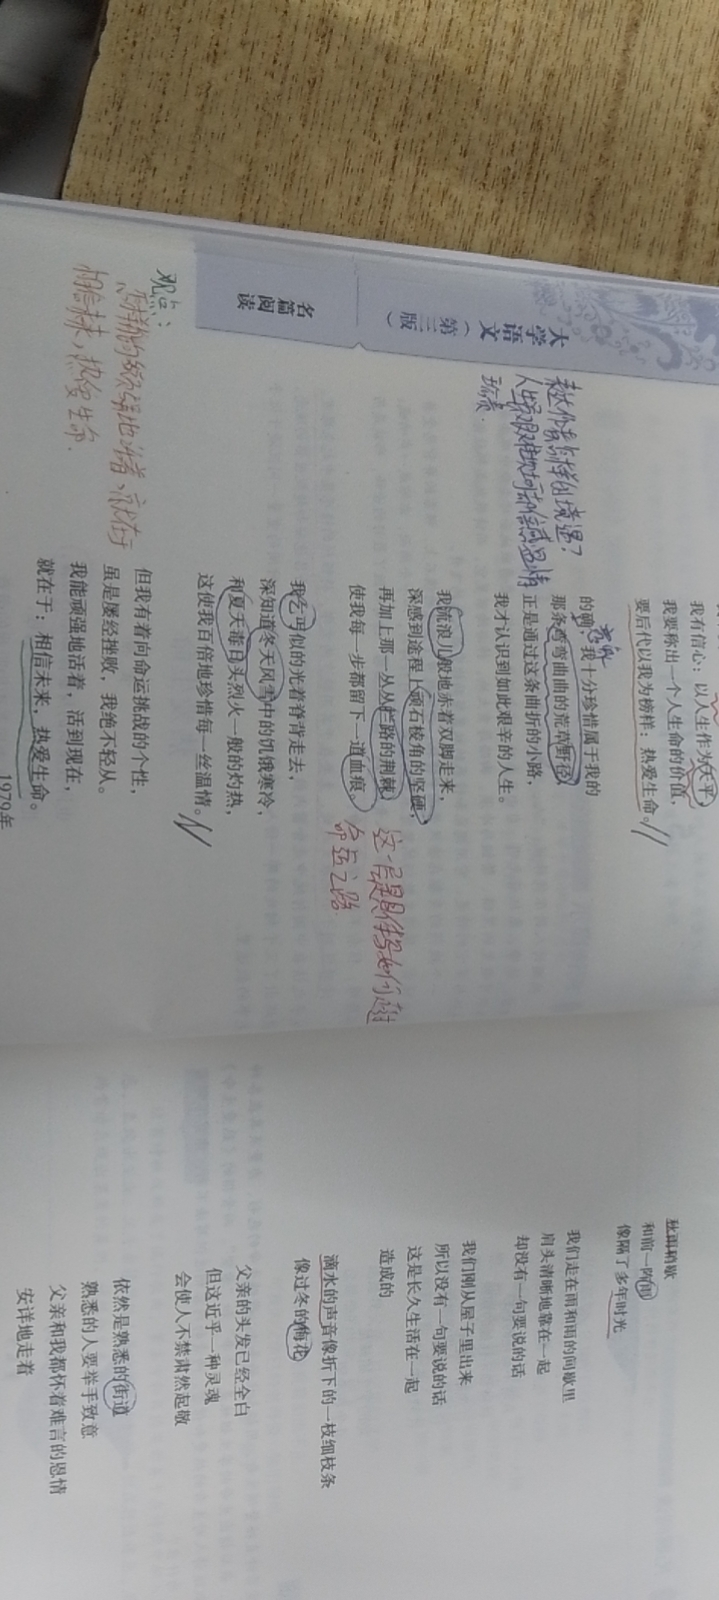 大学语文（第三版）
名篇阅读
我有信心：以人生作为天平，
我要称出一个人生命的价值，
要后代以我为榜样：热爱生命。
的确，我十分珍惜属于我的
那条弯弯曲曲的荒草野径，
正是通过这条曲折的小路，
我才认识到如此艰辛的人生。
我流浪儿般地赤着双脚走来，
深感到途程上顽石棱角的坚硬，
再加上那一丛丛拦路的荆棘
使我每一步都留下一道血痕。
我乞丐似的光着脊背走去，
深知道冬天风雪中的饥饿寒冷，
和夏天毒日头烈火一般的灼热，
这使我百倍地珍惜每一丝温情。
但我有着向命运挑战的个性，
虽是屡经挫败，我绝不轻从。
我能顽强地活着，活到现在，
就在于：相信未来，热爱生命。
1979年
观点：
热爱生命．
命运之路
秋雨稍歇
和前一阵间
像隔了多年时光
我们走在雨和雨的间歇里
肩头清晰地靠在一起
却没有一句要说的话
我们刚从屋子里出来
所以没有一句要说的话
这是长久生活在一起
造成的
滴水的声音像折下的一枝细枝条
像过冬的梅花
父亲的头发已经全白
但这近乎一种灵魂
会使人不禁肃然起敬
依然是熟悉的街道
熟悉的人要举手致意
父亲和我都怀着难言的恩情
安详地走着